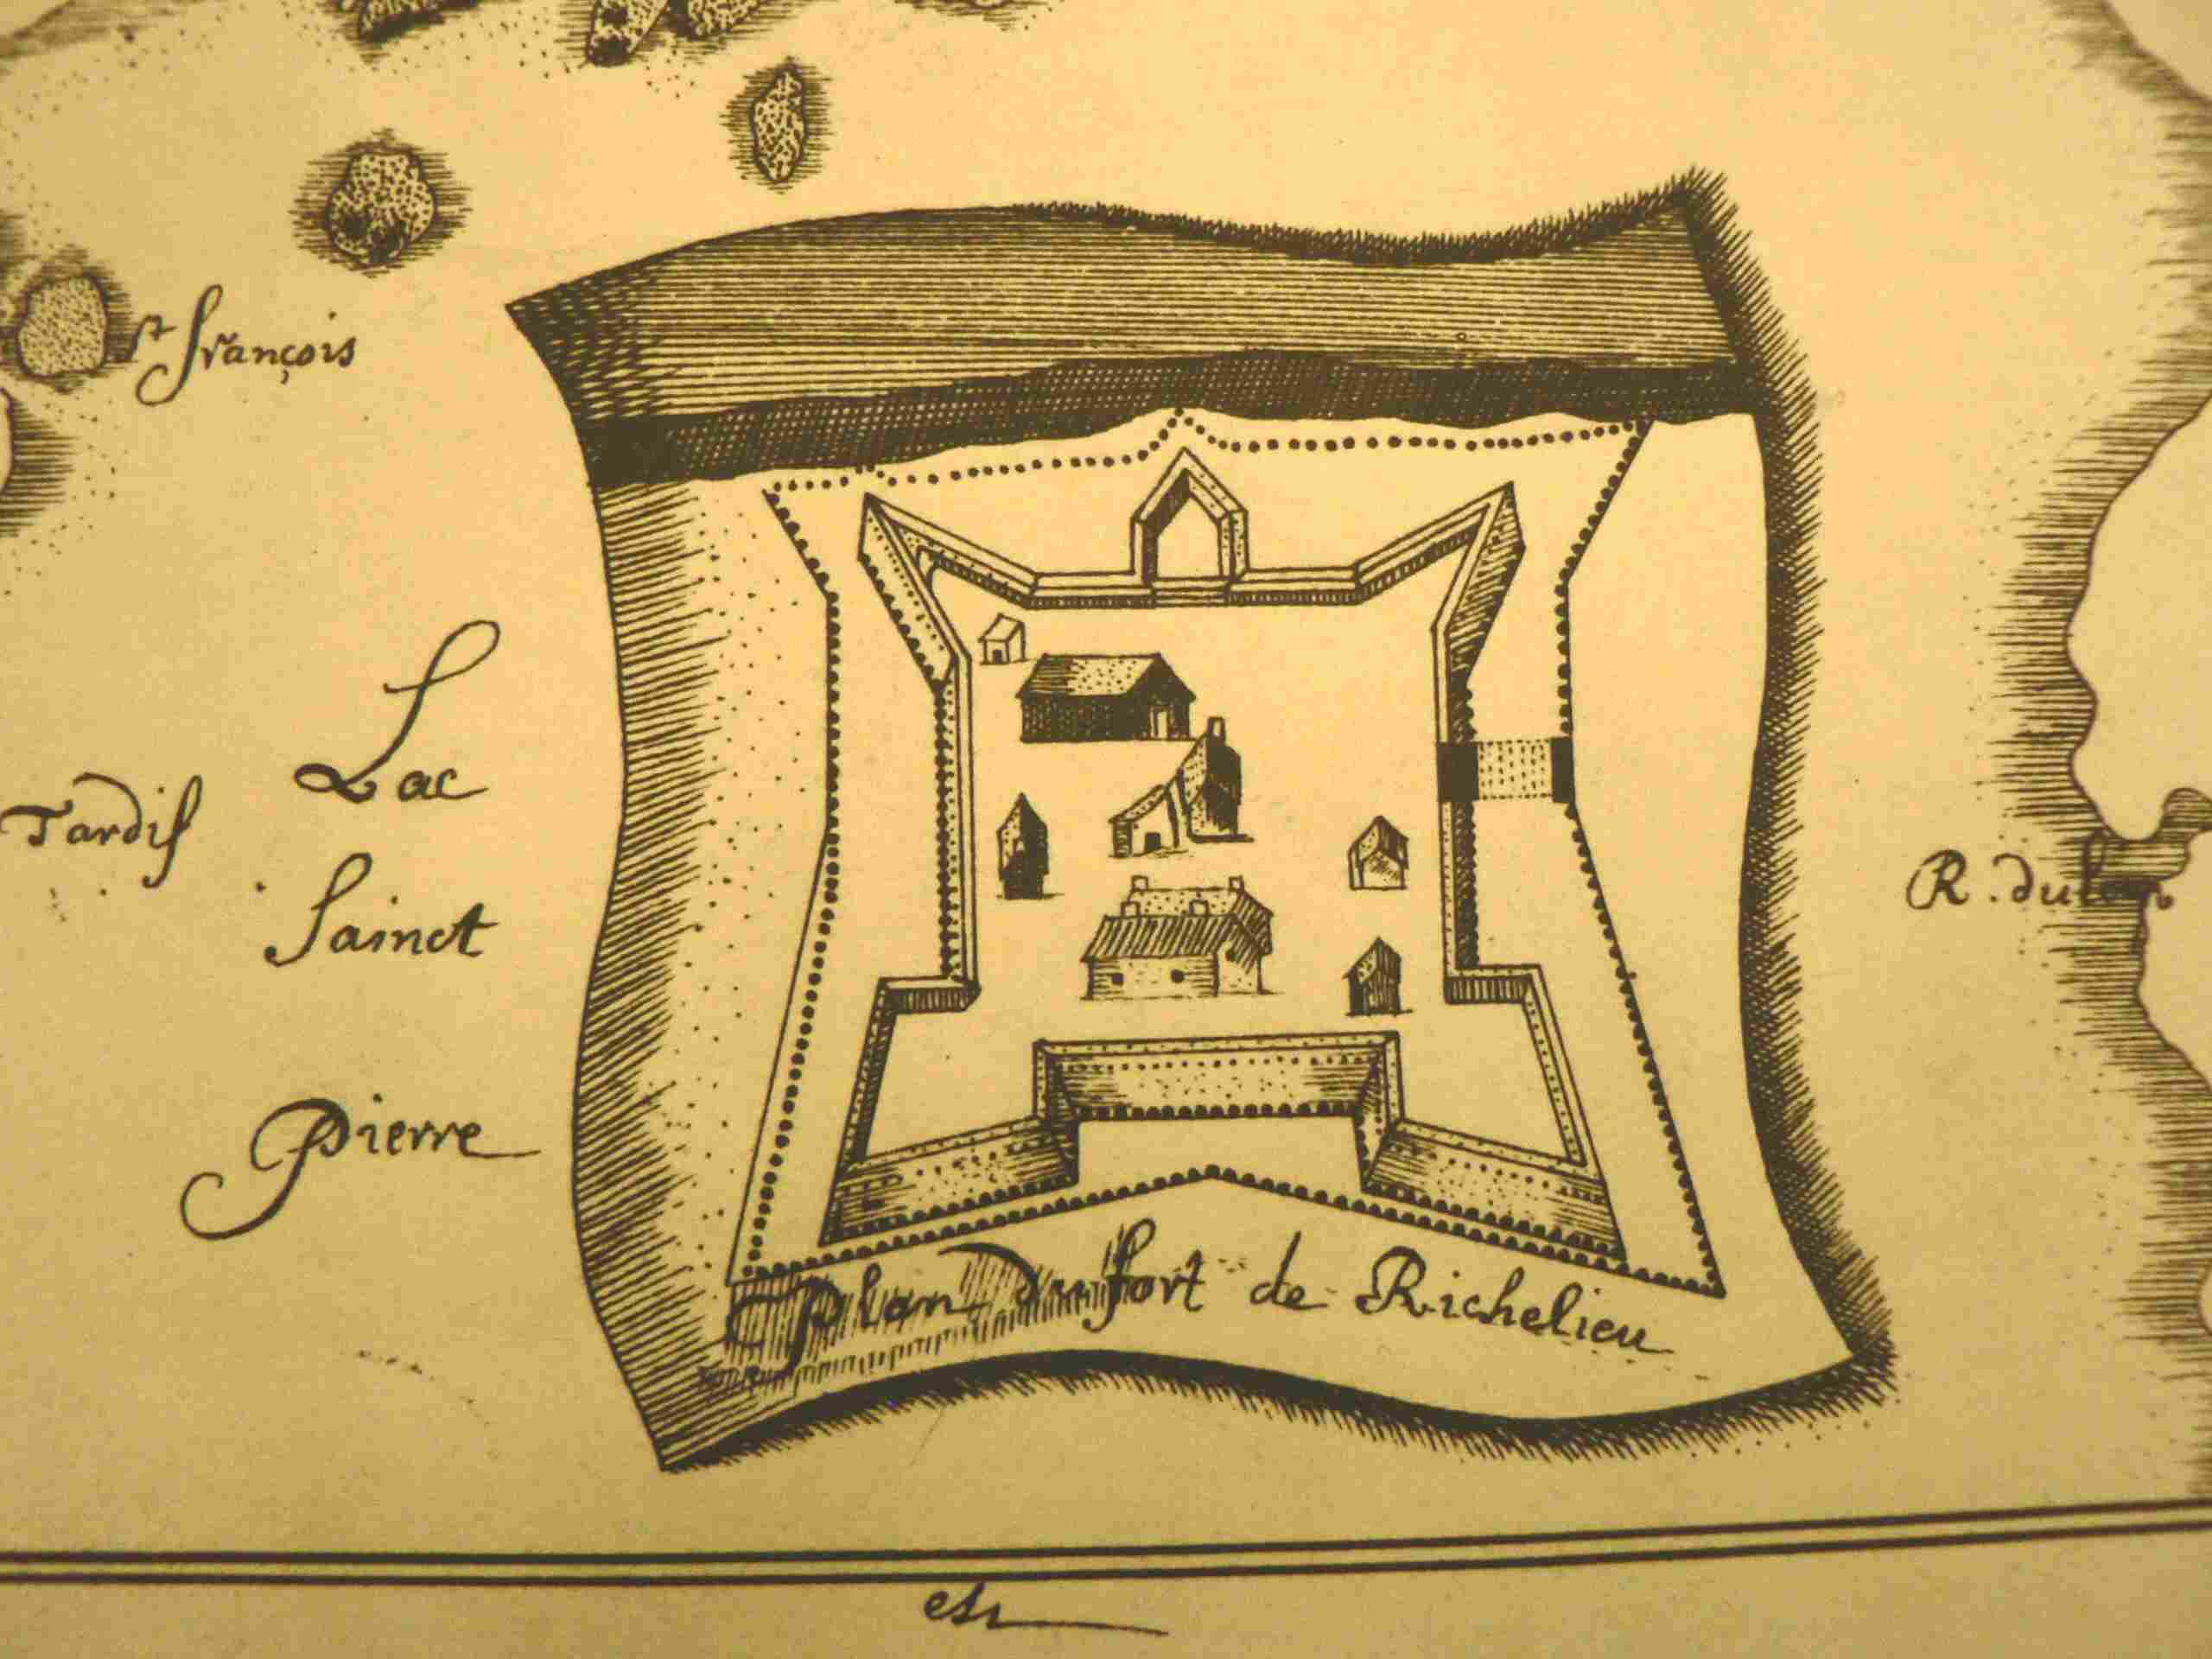 St françois
Lac
Tardif
Sainct
Pierre
R. du
Plan du fort de Richelieu
est